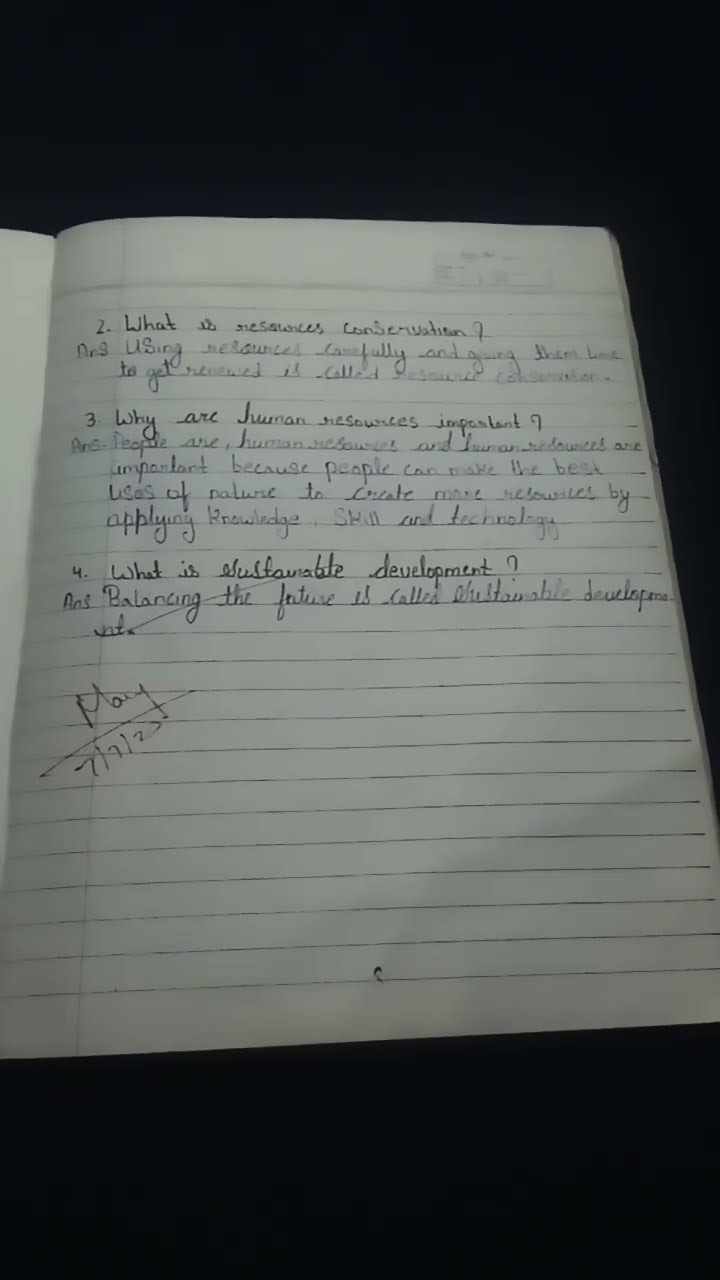 2. What is resources conservation?
Ans Using resources carefully and giving them time
to get renewed is called resource conservation.
3. Why are human resources important?
Ans- People are, human resources and human resources are
important because people can make the best
uses of nature to create more resources by
applying knowledge, skill and technology
4. What is sustainable development?
Ans Balancing the future is called sustainable developme
nt.